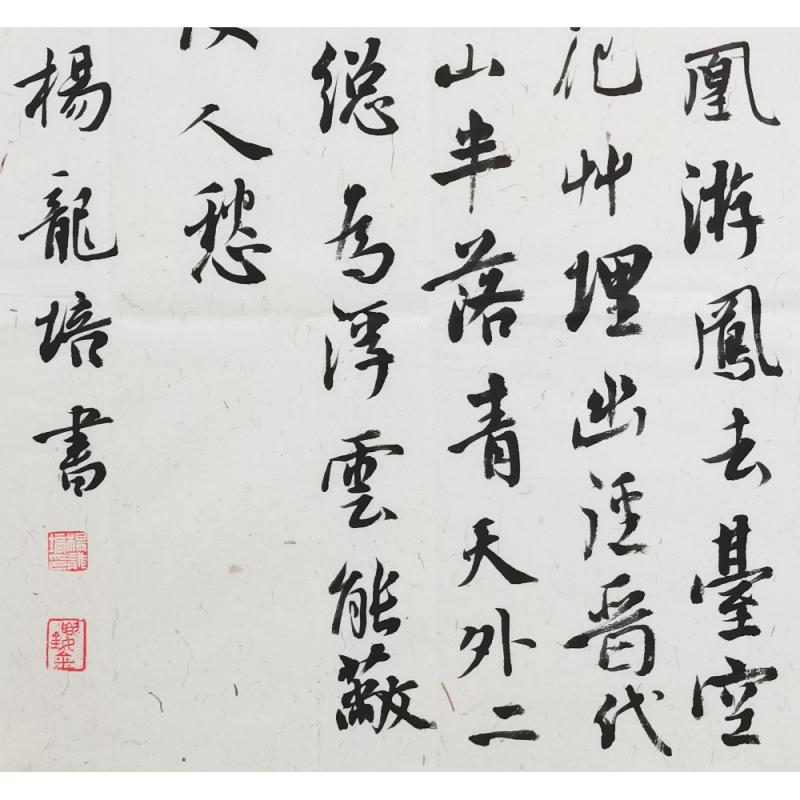 凰游鳳去臺空
花艸埋幽徑晋代
山半落青天外二
總為浮雲能蔽
人愁
楊龍培書